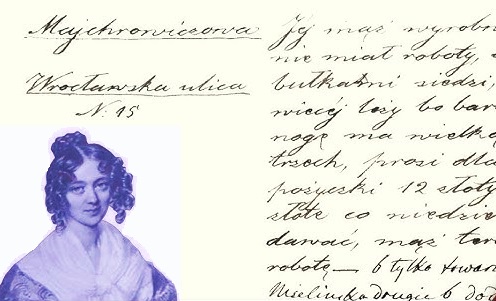 Majchrowiczowa
Wrocławska ulica
N. 15
Jej mąż wyrobn
nie miał roboty,
butkami siedzi,
więcéj leży bo bar
nogę ma wielką
trzech, prosi dla
pożyczki 12 złoty
złote co niedzie
dawać, mąż ter
robotę — 6 tylko towar
drugie 6 do